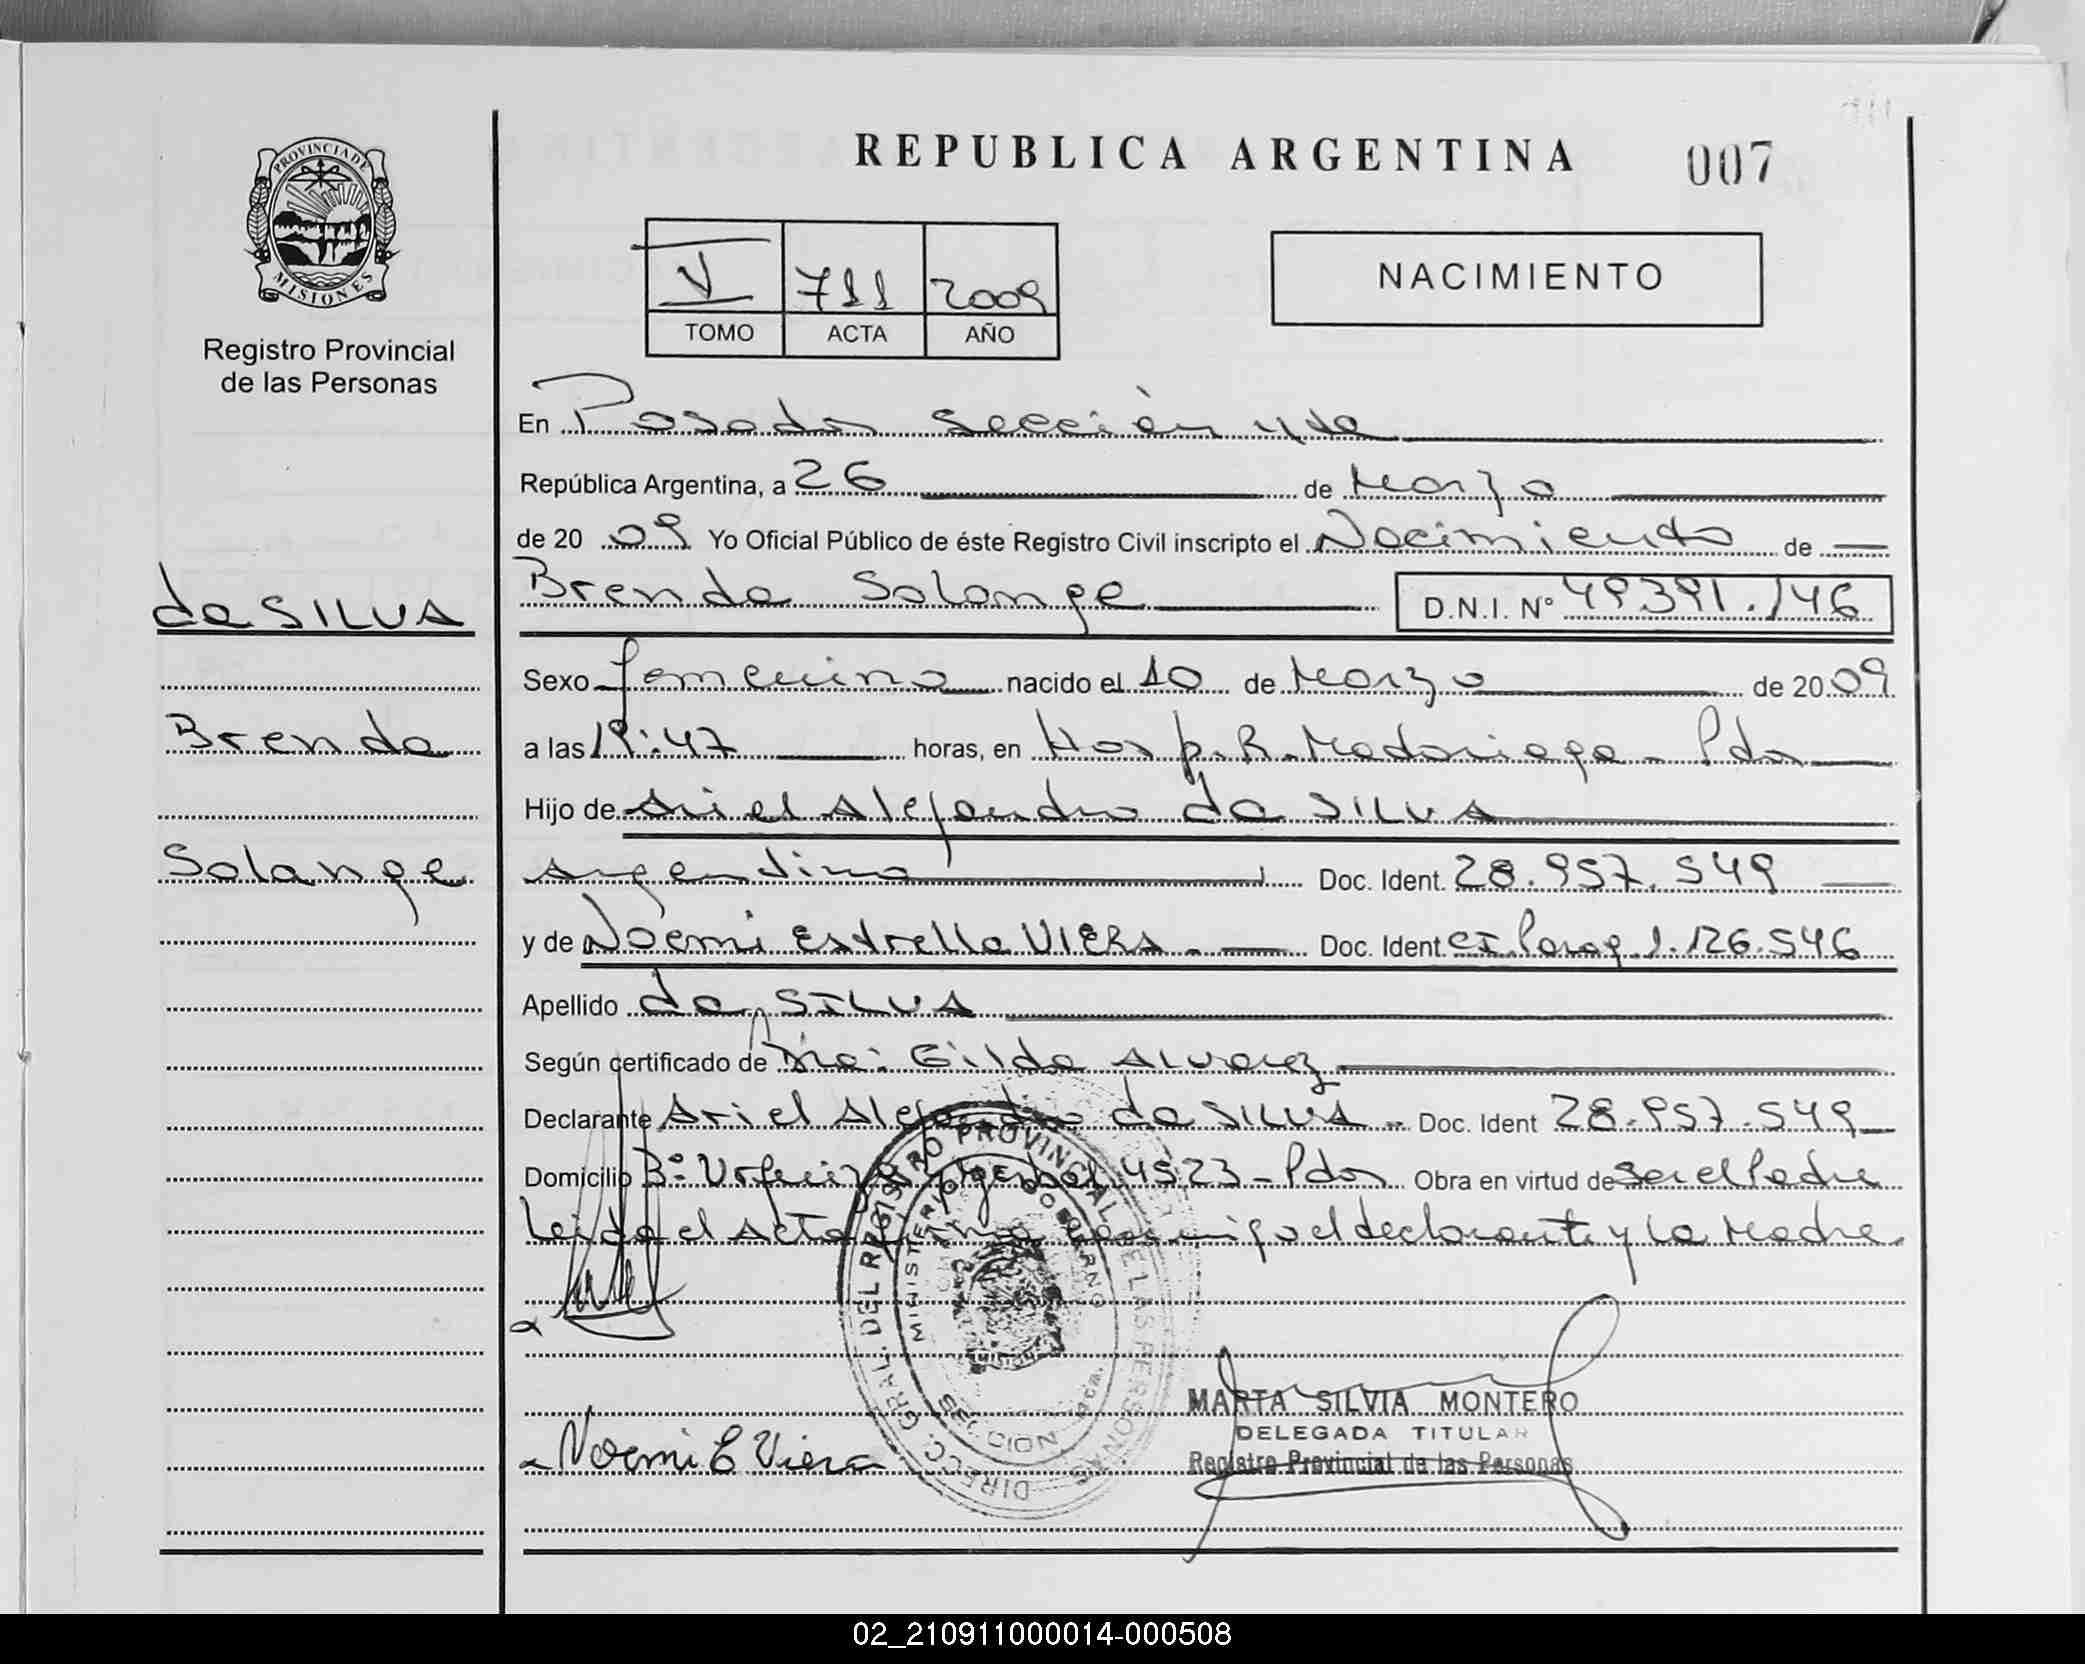 REPUBLICA ARGENTINA 007
PROVINCIA DE
MISIONES
Registro Provincial
de las Personas
V 711 2009
TOMO ACTA AÑO
NACIMIENTO
En Posadas Sección 4ta
República Argentina, a 26 de Marzo
de 20 09 Yo Oficial Público de éste Registro Civil inscripto el Nacimiento de
Brenda Solange D.N.I. Nº 49.391.146
da SILVA
Brenda
Solange
Sexo femenino nacido el 10 de Marzo de 20 09
a las 19:47 horas, en Hosp. R. Madariaga - Pdas
Hijo de Ariel Alejandro da SILVA
argentino Doc. Ident. 28.957.549
y de Noemi Estrella VIERA. Doc. Ident CI. Parag. 1.126.546
Apellido da SILVA
Según certificado de Dra: Gilda Alvarez
Declarante Ariel Alejandro da SILVA Doc. Ident 28.957.549
Domicilio Bº 4523 - Pdas Obra en virtud de Ser el Padre
Leida el Acta firma conmigo el declarante y la Madre
DIRECC. GRAL. DEL REGISTRO PROVINCIAL DE LAS PERSONAS
MINISTERIO DE GOBIERNO
Noemi E Viera
MARTA SILVIA MONTERO
DELEGADA TITULAR
Registro Provincial de las Personas
02_210911000014-000508